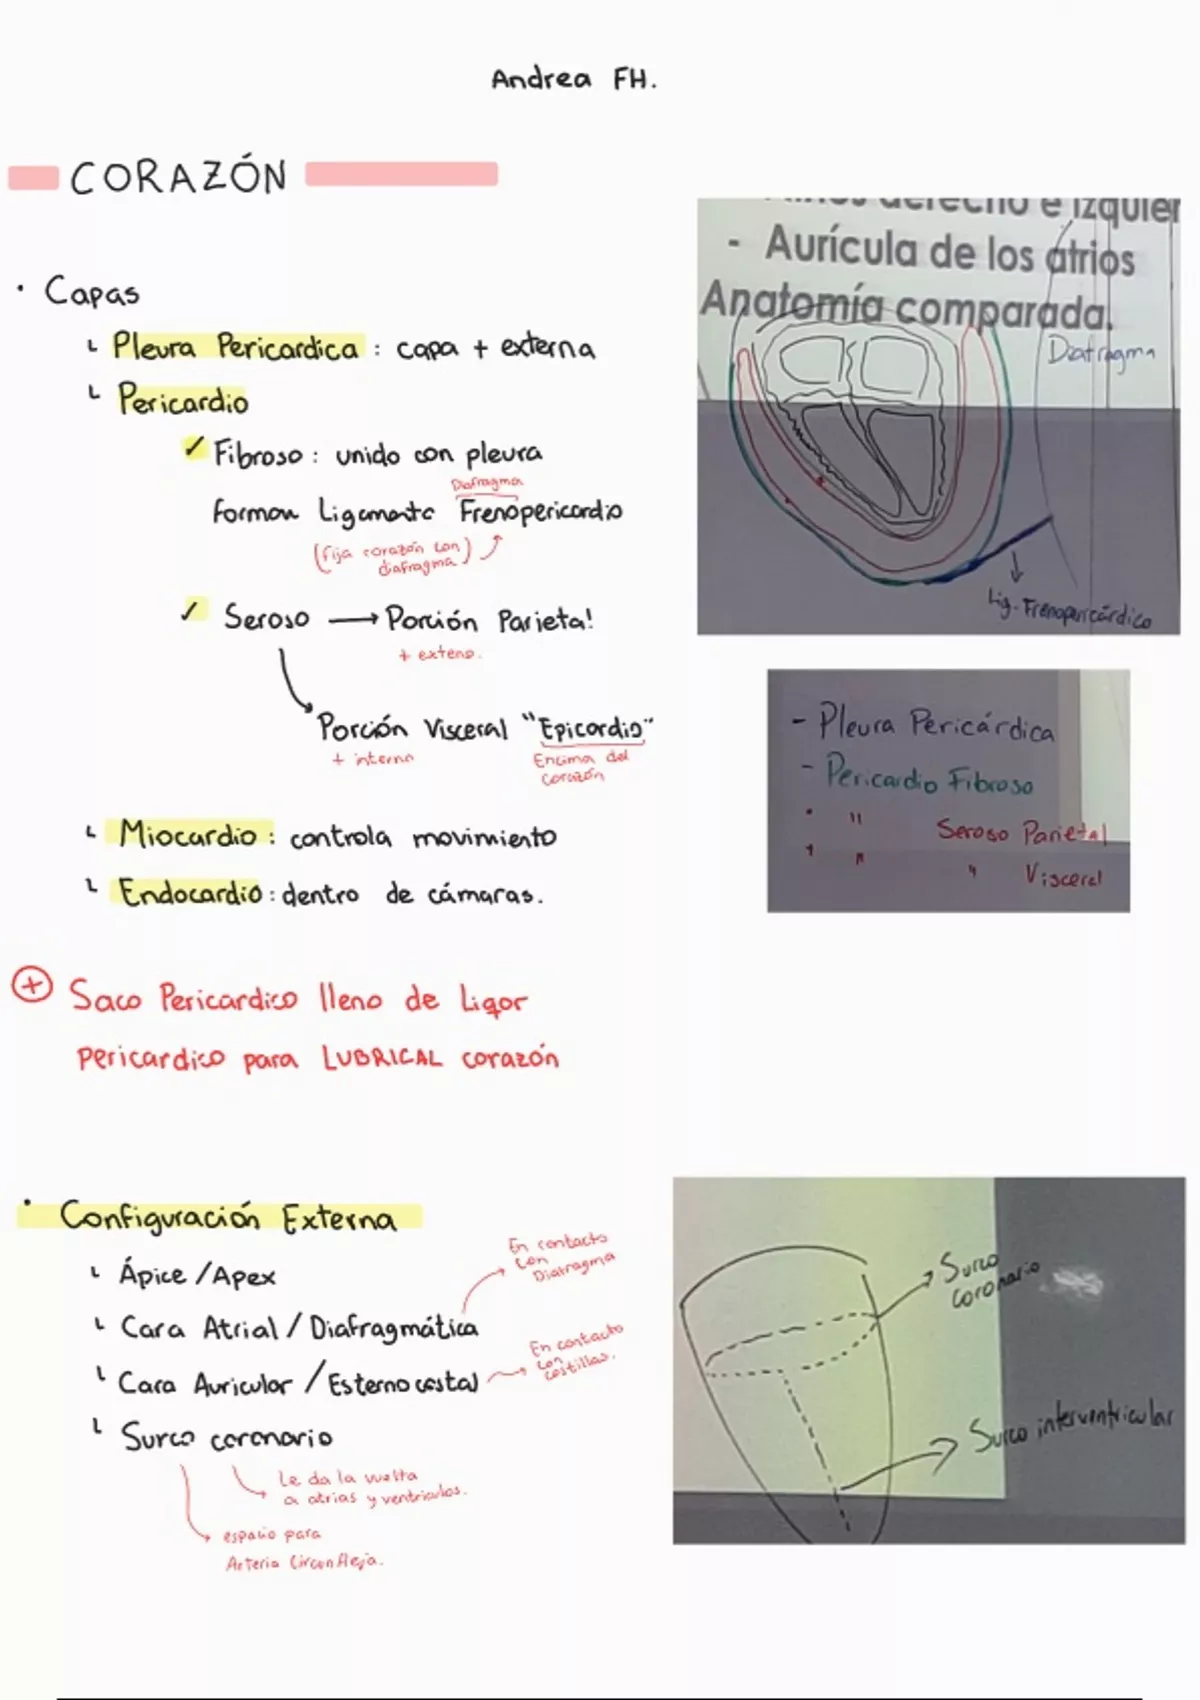 Andrea FH.
CORAZÓN
· Capas
Pleura Pericardica : capa + externa
Pericardio
✓ Fibroso : unido con pleura
Diafragma
forman Ligamento Frenopericardio
(fija corazón con
diafragma)
✓ Seroso → Porción Parietal
+ externo.
Porción Visceral "Epicardio"
+ interna
Encima del
corazón
Miocardio : controla movimiento
Endocardio : dentro de cámaras.
+ Saco Pericardico lleno de Liqor
Pericardico para LUBRICAL corazón
derecho e izquier
- Aurícula de los atrios
Anatomía comparada.
Diafragma
Lig. Frenopericárdico
- Pleura Pericárdica
- Pericardio Fibroso
" Seroso Parietal
" " Visceral
· Configuración Externa
Ápice / Apex
En contacto
con
Diafragma
Cara Atrial / Diafragmática
En contacto
con
costillas.
Cara Auricular / Esternocostal
Surco coronario
Le da la vuelta
a atrias y ventriculos.
espacio para
Arteria Circonfleja.
Surco
coronario
Surco interventricular